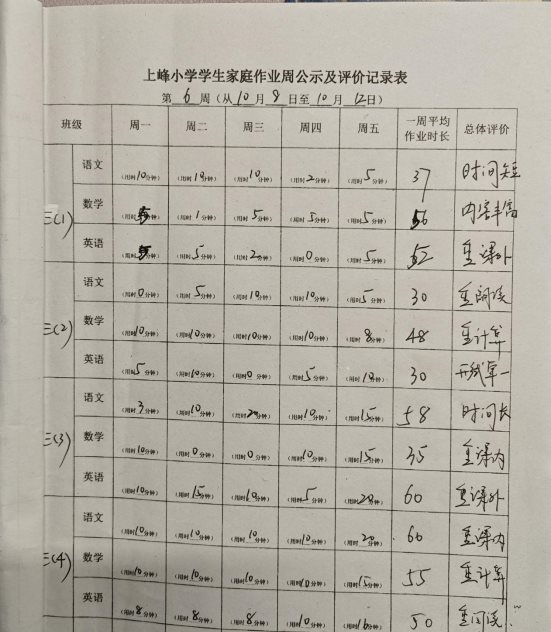 上峰小学学生家庭作业周公示及评价记录表
第 6 周（从 10 月 8 日至 10 月 12 日）
班级 周一 周二 周三 周四 周五 一周平均作业时长 总体评价
三(1) 语文 （用时10分钟） （用时10分钟） （用时10分钟） （用时2分钟） （用时5分钟） 37 时间短
数学 （用时5分钟） （用时1分钟） （用时5分钟） （用时5分钟） （用时5分钟） 内容丰富
英语 （用时5分钟） （用时5分钟） （用时2分钟） （用时0分钟） （用时5分钟） 重课外
三(2) 语文 （用时0分钟） （用时5分钟） （用时10分钟） （用时10分钟） （用时5分钟） 30 重阅读
数学 （用时10分钟） （用时10分钟） （用时10分钟） （用时10分钟） （用时8分钟） 48 重计算
英语 （用时5分钟） （用时10分钟） （用时0分钟） （用时5分钟） （用时10分钟） 30 形式单一
三(3) 语文 （用时3分钟） （用时10分钟） （用时20分钟） （用时10分钟） （用时15分钟） 58 时间长
数学 （用时10分钟） （用时0分钟） （用时0分钟） （用时10分钟） （用时15分钟） 35 重课内
英语 （用时10分钟） （用时15分钟） （用时10分钟） （用时5分钟） （用时20分钟） 60 重课外
三(4) 语文 （用时10分钟） （用时10分钟） （用时10分钟） （用时10分钟） （用时20分钟） 60 重课内
数学 （用时10分钟） （用时10分钟） （用时10分钟） （用时10分钟） （用时15分钟） 55 重计算
英语 （用时8分钟） （用时8分钟） （用时8分钟） （用时10分钟） （用时16分钟） 50 重阅读